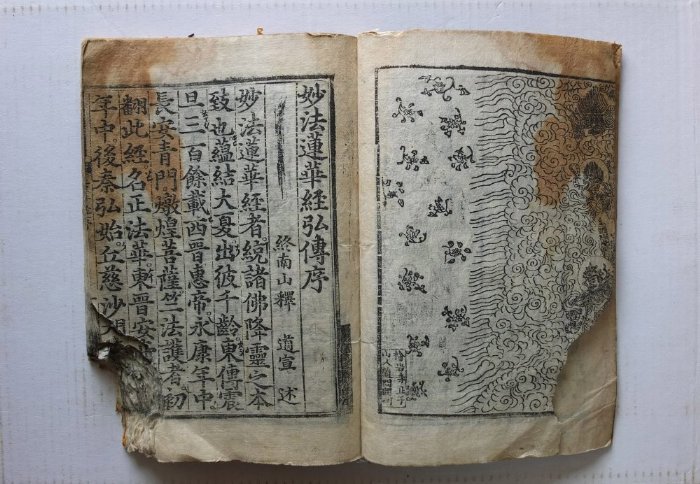 妙法蓮華經弘傳序
終南山釋 道宣 述
妙法蓮華經者統諸佛降靈之本
致也蘊結大夏出彼千齡東傳震
旦三百餘載西晉惠帝永康年中
長安青門燉煌菩薩竺法護者初
翻此經名正法華東晉安
年中後秦弘始丘慈沙